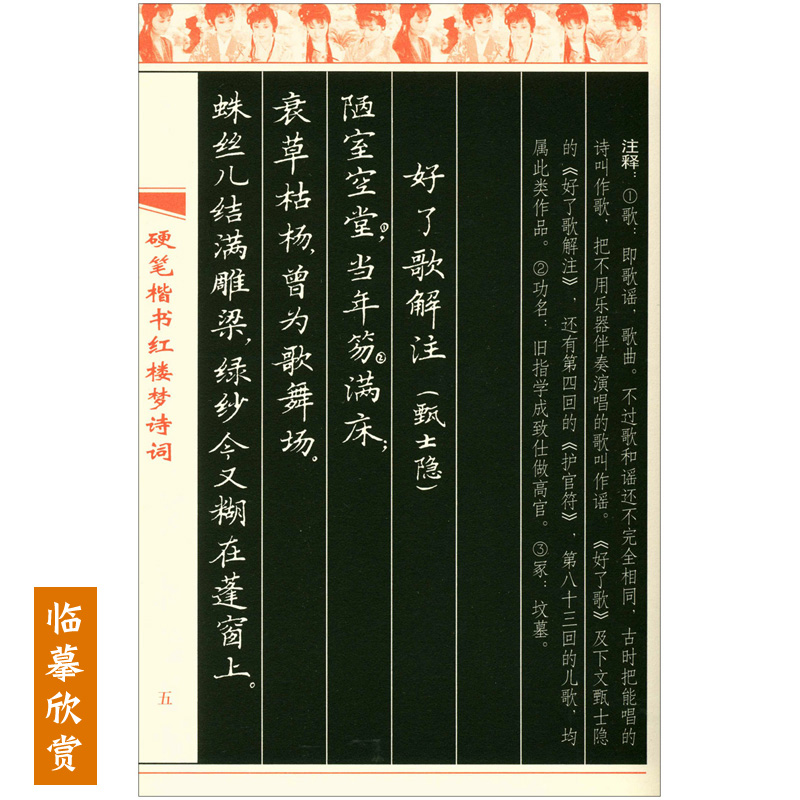 注释：①歌：即歌谣，歌曲。不过歌和谣还不完全相同，古时把能唱的
诗叫作歌，把不用乐器伴奏演唱的歌叫作谣。《好了歌》及下文甄士隐
的《好了歌解注》，还有第四回的《护官符》，第八十三回的儿歌，均
属此类作品。②功名：旧指学成致仕做高官。③冢：坟墓。
好了歌解注（甄士隐）
陋室空堂①，当年笏②满床；
衰草枯杨，曾为歌舞场。
蛛丝儿结满雕梁，绿纱今又糊在蓬窗上。
硬笔楷书红楼梦诗词
五
临摹欣赏